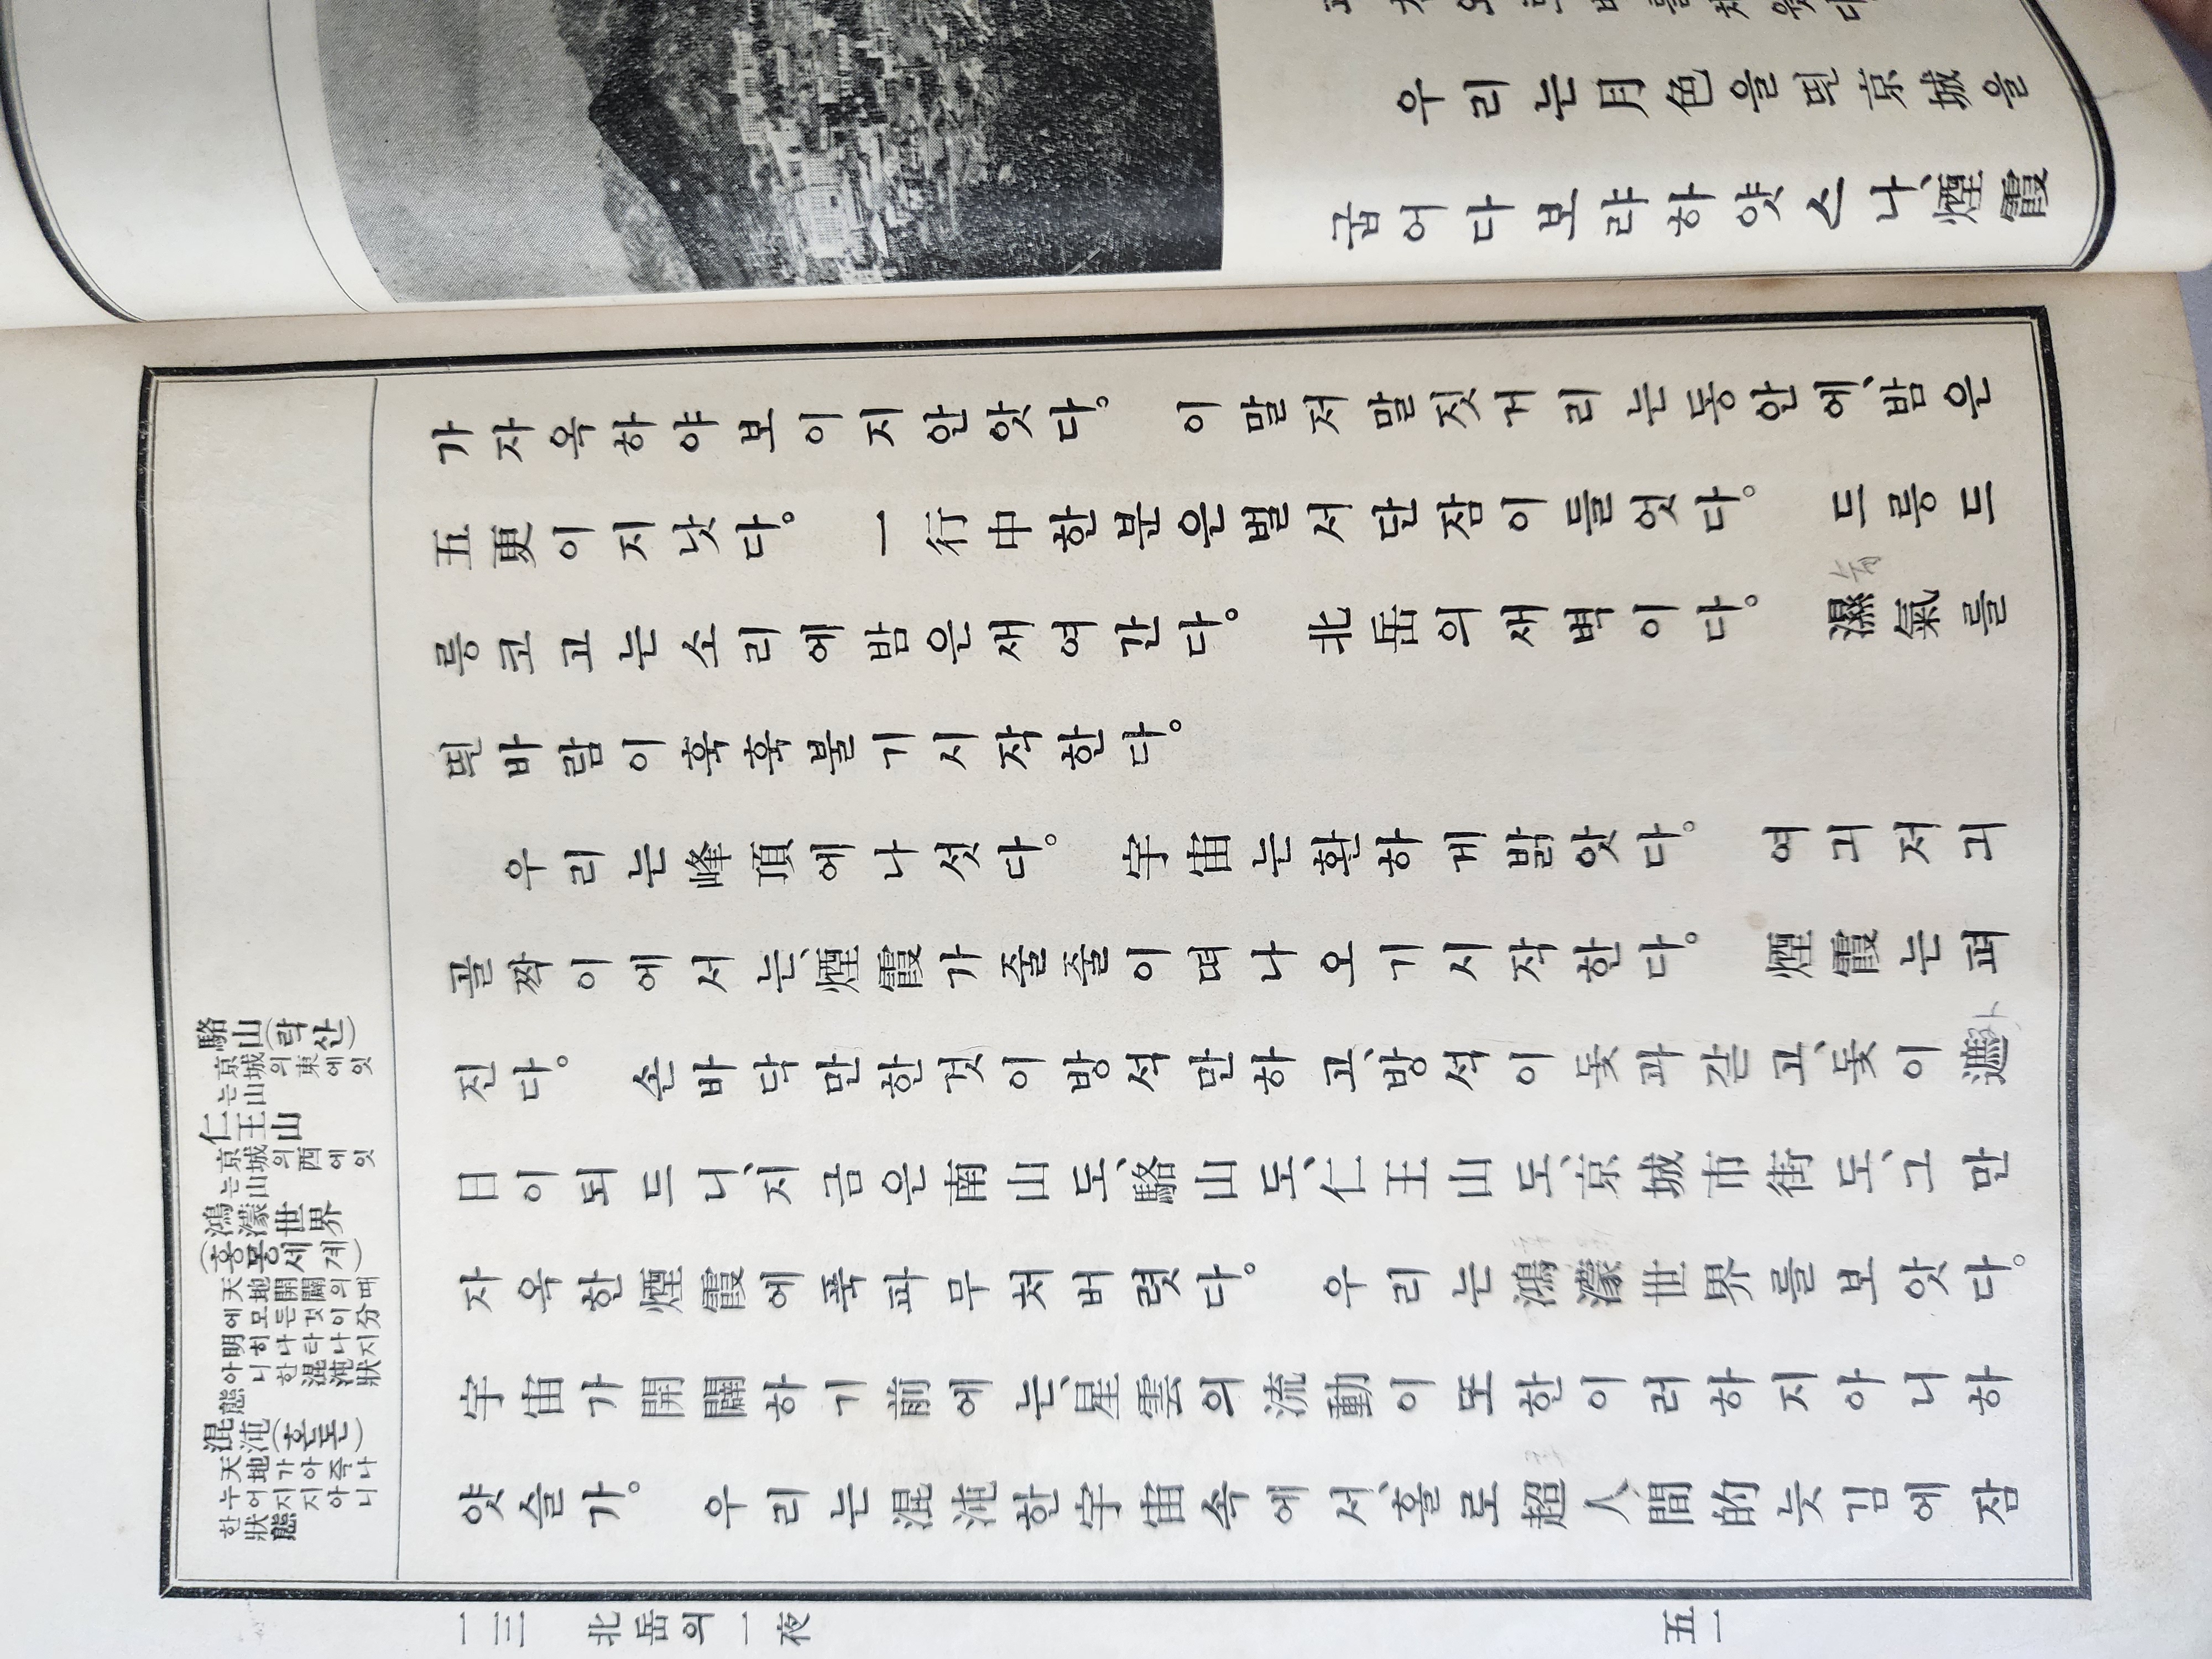 우리는月色을띈京城을
굽어다보랴하얏스나、煙霞
가자옥하야보이지안앗다。 이말저말짓거리는동안에、밤은
五更이지낫다。 一行中한분은벌서단잠이들엇다。 드릉드
릉코고는소리에밤은새여간다。 北岳의새벽이다。 濕氣를
띈바람이훅훅불기시작한다。
우리는峰頂에나섯다。 宇宙는환하게밝앗다。 여긔저긔
골짝이에서는、煙霞가줄줄이떠나오기시작한다。 煙霞는퍼
진다。 손바닥만한것이방석만하고、방석이돛과갇고、돛이遮
日이되드니、지금은南山도、駱山도、仁王山도、京城市街도、그만
자옥한煙霞에푹파무처버렷다。 우리는鴻濛世界를보앗다。
宇宙가開闢하기前에는、星雲의流動이또한이러하지아니하
얏슬가。 우리는混沌한宇宙속에서、홀로超人間的늣김에잠
駱山(락산)
京城의東에잇
는山
仁王山
京城의西에잇
는山
鴻濛世界
(홍몽세계)
天地開闢의때
에모든것이分
明히나타나지
아니한混沌狀
態
混沌(혼돈)
天地가아즉나
누어지지아니
한狀態
一三 北岳의一夜
五一